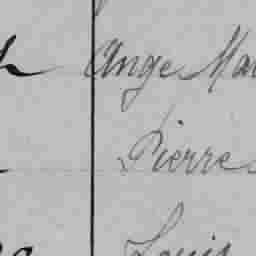 Ange Ma
Pierre
Louis